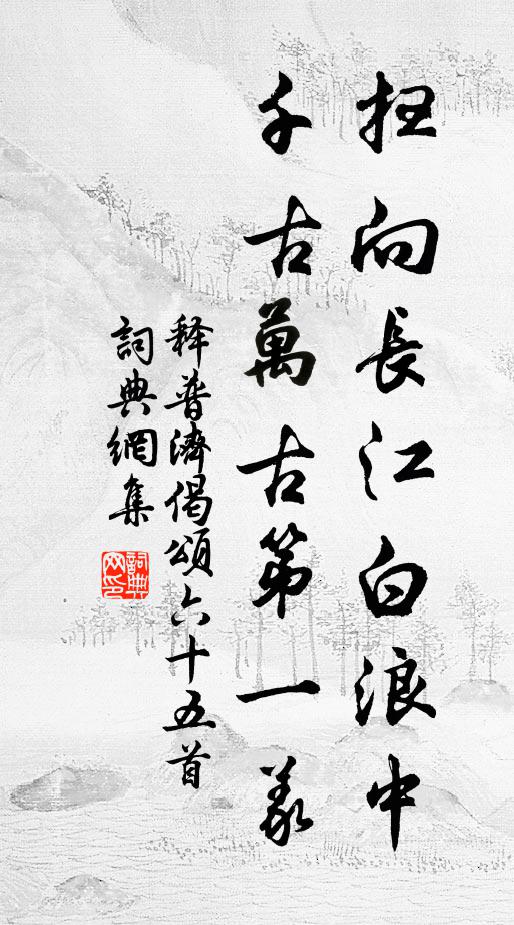 扭向長江白浪中
千古萬古第一義
释普濟偈頌六十五首
詞典網集
詞典网印